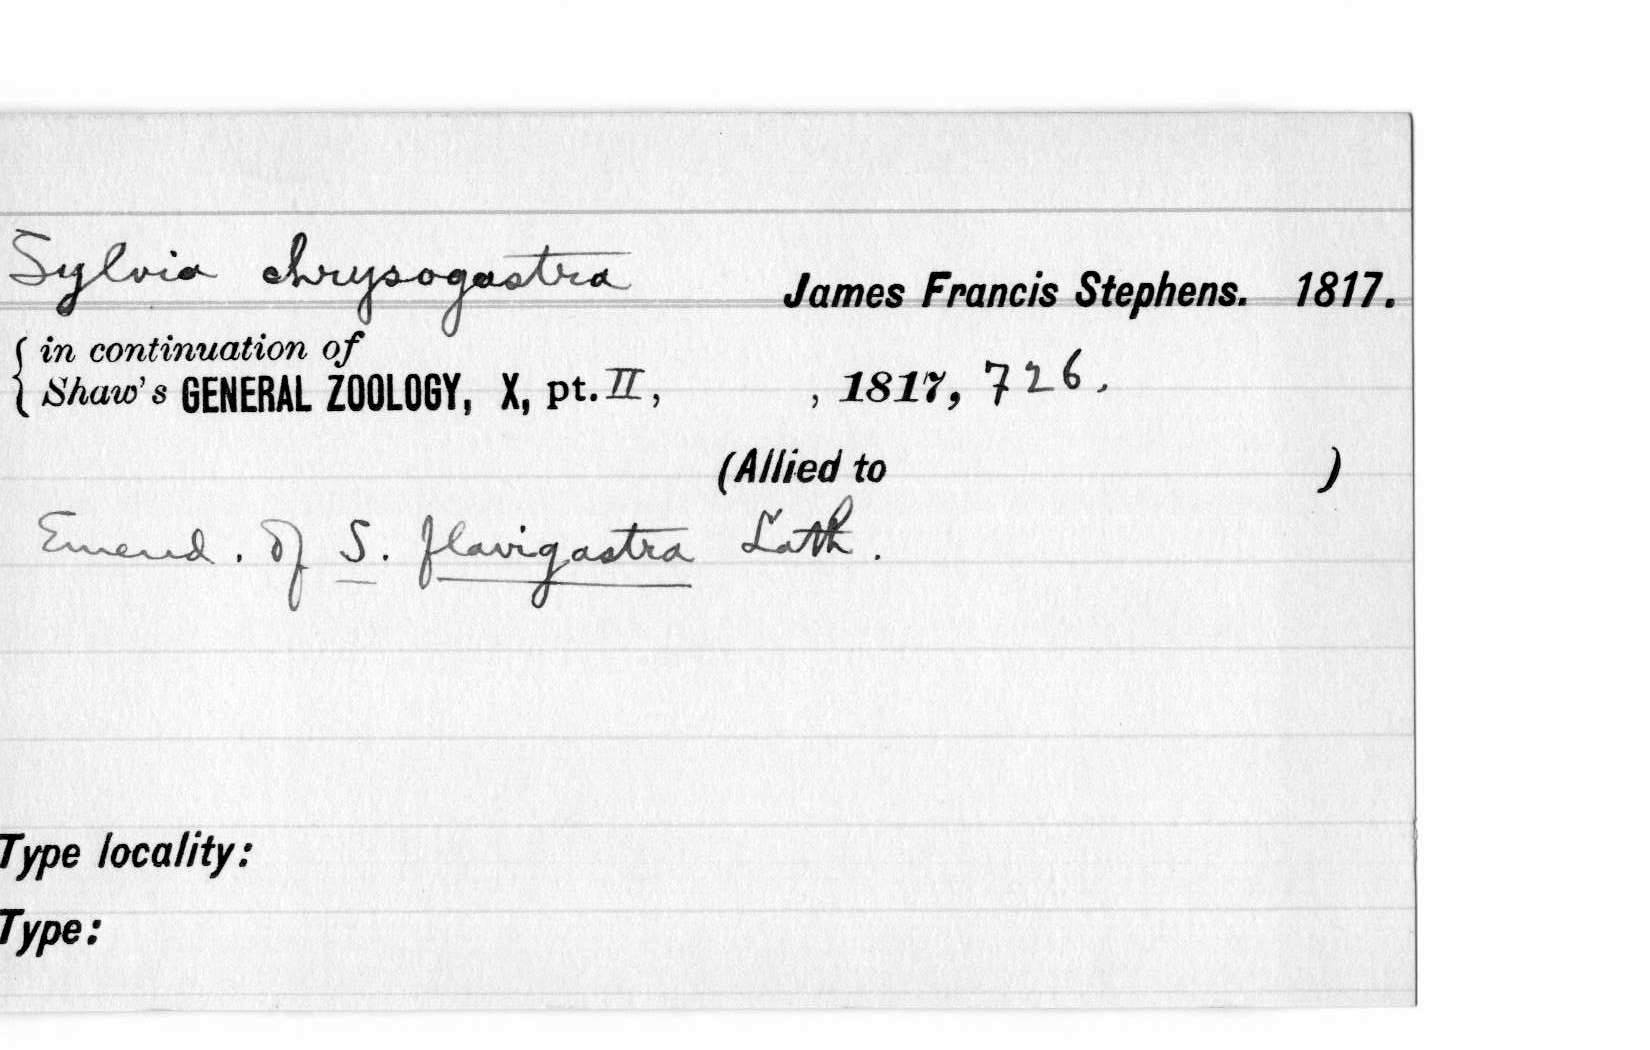 Sylvia chrysogastra James Francis Stephens. 1817.
{ in continuation of
Shaw's GENERAL ZOOLOGY, X, pt. II, , 1817, 726.
(Allied to )
Emend. of S. flavigastra Lath.
Type locality:
Type: